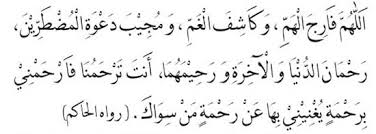 اَللّٰهُمَّ فَارِجَ الْهَمِّ، وَكَاشِفَ الْغَمِّ، وَمُجِيْبَ دَعْوَةِ الْمُضْطَرِّيْنَ،
رَحْمَانَ الدُّنْيَا وَالْآخِرَةِ وَرَحِيْمَهُمَا، أَنْتَ تَرْحَمُنَا فَارْحَمْنِيْ
بِرَحْمَةٍ يُغْنِيْنِيْ بِهَا عَنْ رَحْمَةِ مَنْ سِوَاكَ. (رواه الحاكم)